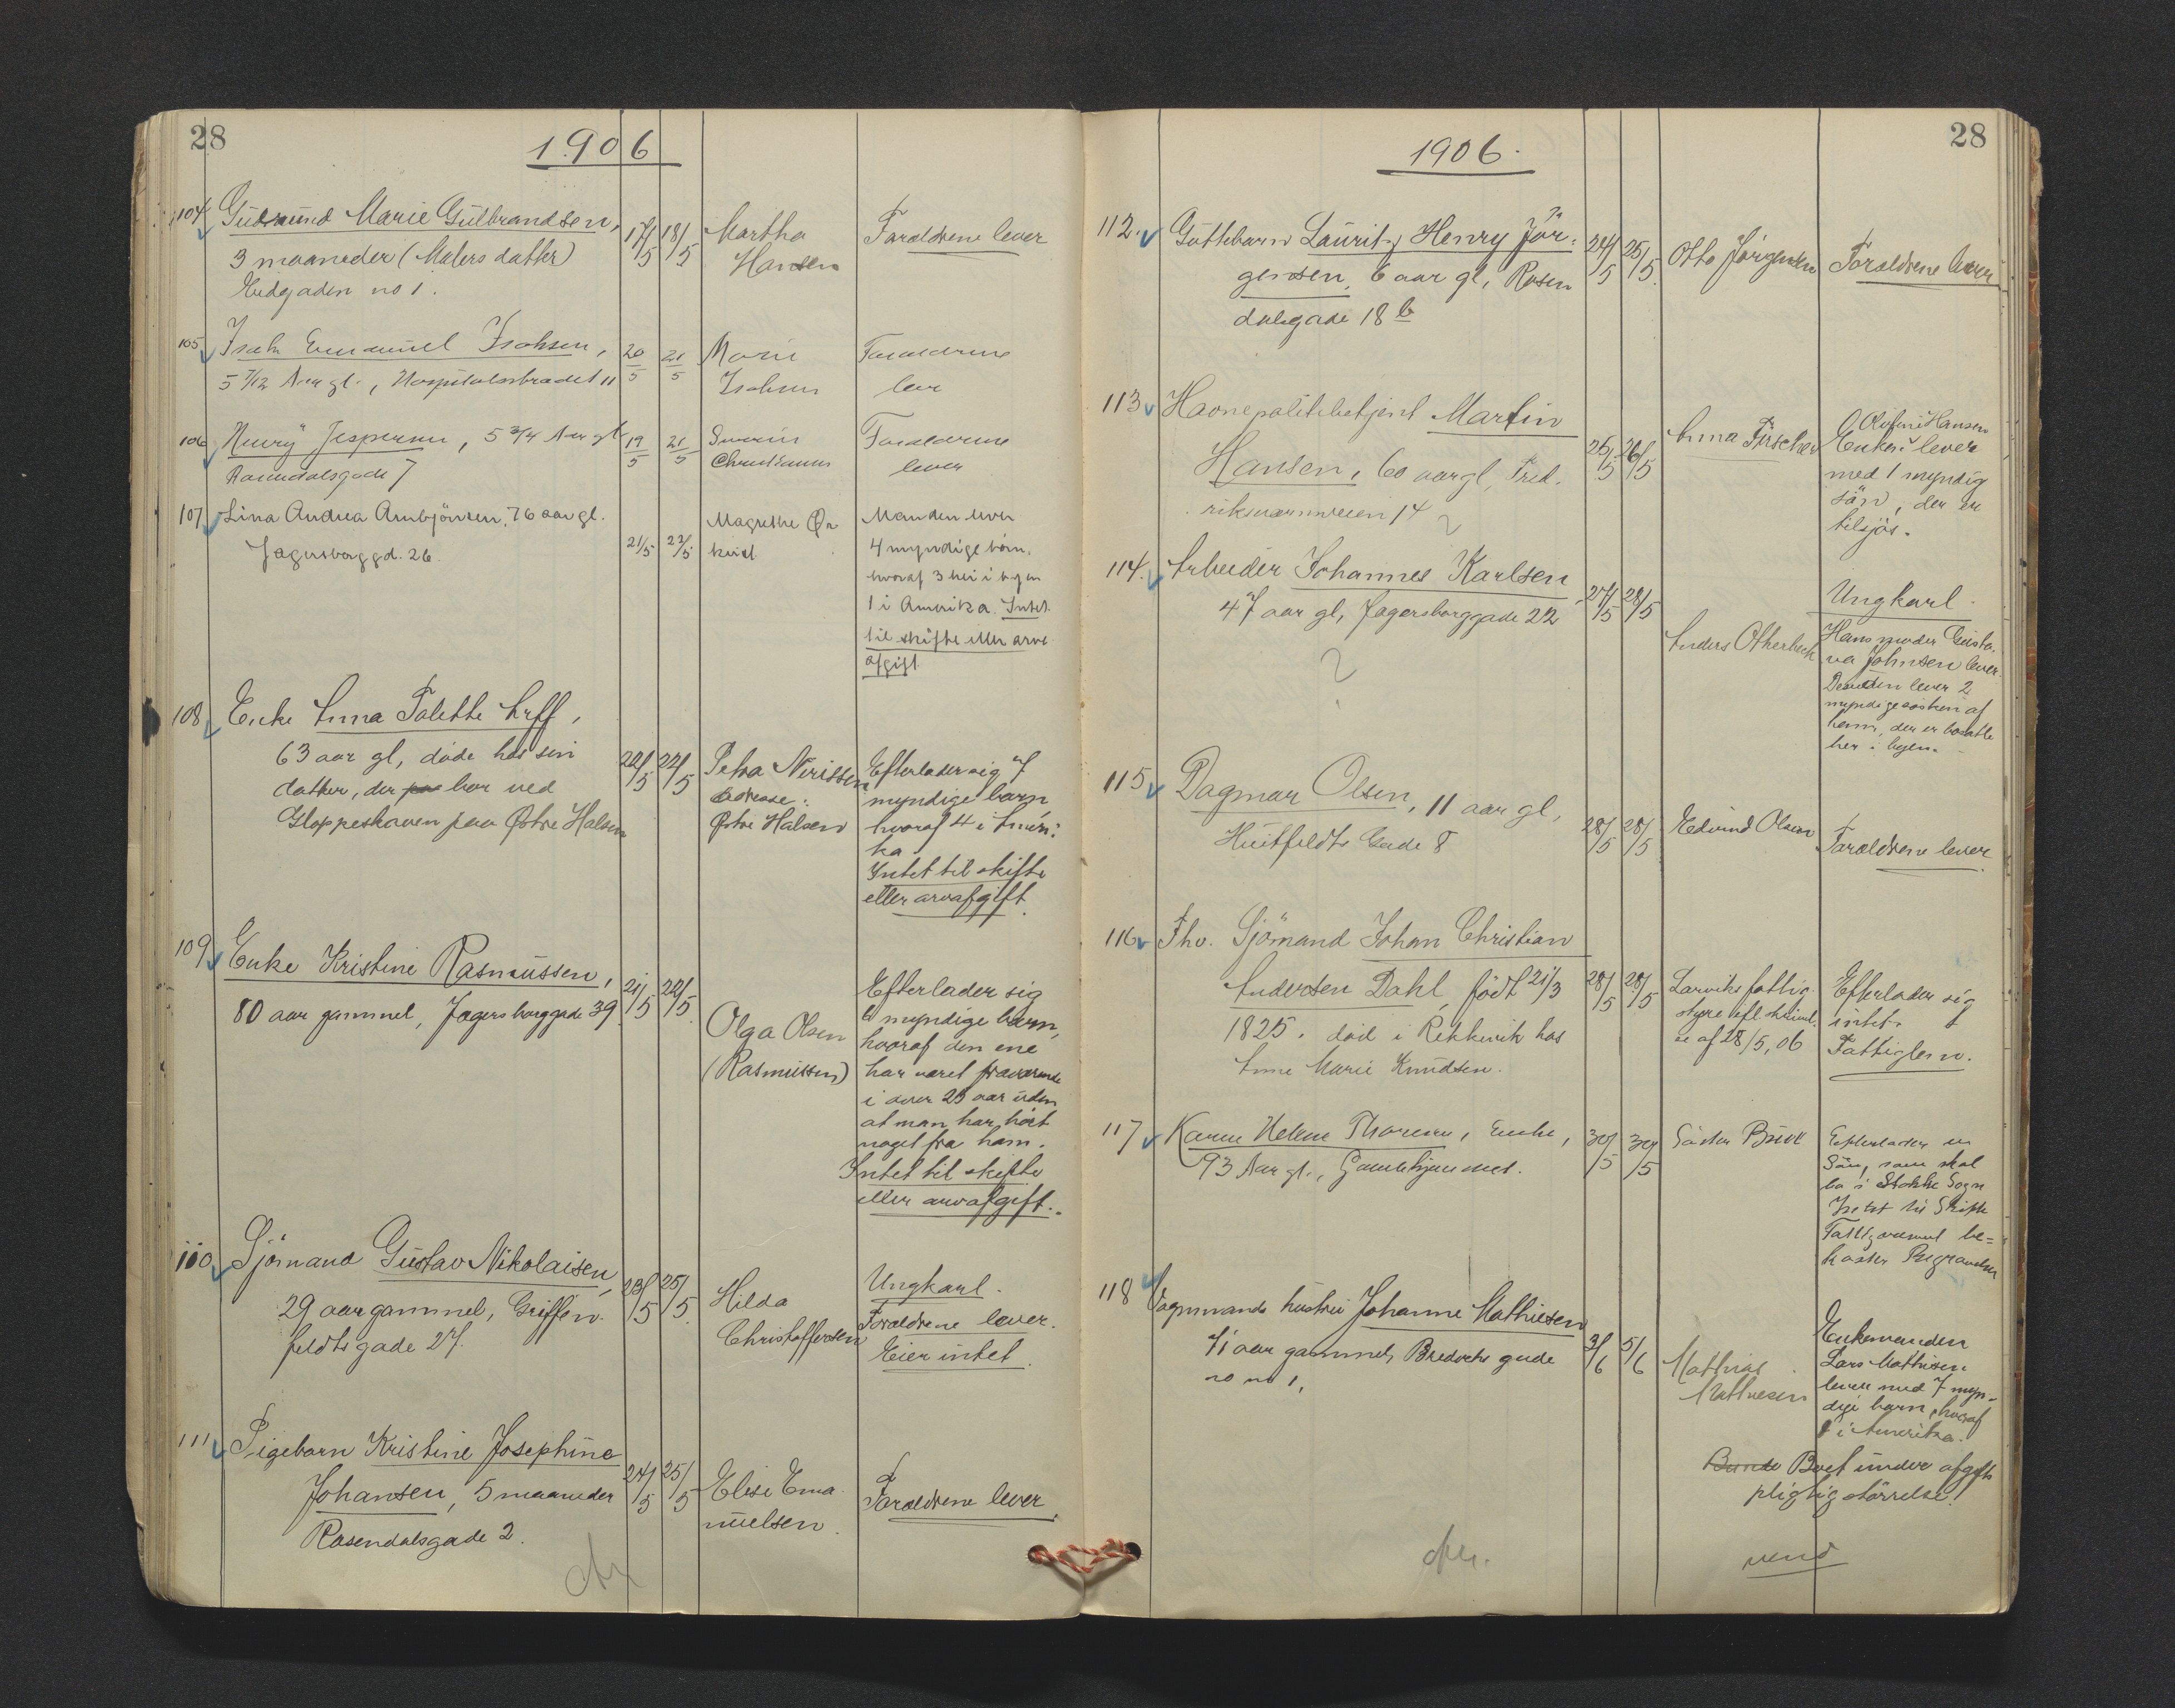 28
1906
104 Gudmund Marie Gulbrandsen,
3 maaneder (Malers datter)
Endgaden no 1.
17/5 18/5
Martha
Hansen
Forældrene lever
105 Isak Emanuel Isaksen,
5 7/12 Aar gl., Hospitalsstrædet 11
20/5 21/5
Marie
Isaksen
Forældrene
lever
106 Henry Jespersen, 5 3/4 Aar gl
7
19/5 21/5
Forældrene
lever
107 Lina Andrea Arnbjönsen, 76 aar gl.
Jegersborggd. 26.
21/5 22/5
Magrethe Qva
kvist
Manden lever
4 myndige börn,
hvoraf 3 her i byen
1 i Amerika. Intet
til skifte eller arve
afgift
108 Enke Anna Tolette Arff,
63 aar gl, döde hos sin
datter, der bor ved
Gloppeskaven paa Østre Halsen
22/5 22/5
Petra
Adresse:
Østre Halsen
Efterlader sig 7
myndige barn,
hvoraf 4 i Ameri-
ka
Intet til skifte
eller arvafgift.
109 Enke Kristine Rasmussen,
80 aar gammel, Jagersborggade 39.
21/5 22/5
Olga Olsen
(Rasmussen)
Efterlader sig
6 myndige barn,
hvoraf den ene
har været fraværende
i over 23 aar uden
at man har hört
noget fra ham.
Intet til skifte
eller arvafgift.
110 Sjömand Gustav Nikolaisen,
29 aar gammel, Griffen-
feldts gade 27.
23/5 25/5
Hilda
Christoffersen
Ungkarl.
Forældrene lever.
Eier intet.
111 Pigebarn Kristine Josephine
Johansen, 5 maaneder
Rosendalsgade 2.
24/5 25/5
Elise Ema-
nuelsen.
Forældrene lever.
28
1906.
112. Guttebarn Lauritz Henry Jör-
gensen, 6 aar gl, Rosen
dalsgade 18 b
24/5 25/5.
Otto Jörgensen
Forældrene lever
113 Havnepolitibetjent Martin
Hansen, 60 aar gl, Fred-
riksværnsveien 14
25/5 26/5
Anna Fischer
Olufine Hansen
Enken lever
med 1 myndig
sön, der er
tilsjös.
114. Arbeider Johannes Karlsen
47 aar gl, Jagersborggade 22
?
27/5 28/5
Anders Otherbech
Ungkarl.
Hans moder Gusta-
va Johnsen lever.
Desuden lever 2
myndige söskren af
ham, der er bosatte
her i byen.
115 Dagmar Olsen, 11 aar gl,
Huitfeldts Gade 8
28/5 28/5
Edvind Olsen
Forældrene lever
116 Fhv. Sjömand Johan Christian
Andersen Dahl, födt 21/3
1825. död i Rekkevik hos
Anne Marie Knudsen.
28/5 28/5
Larviks fattig-
styre efl skrivel-
se af 28/5,06
Efterlader sig
intet.
Fattiglem.
117 Karen Helene Thoresen, Enke,
93 Aar gl., Gamlehjemmet.
30/5 30/5
Söster
Efterlader en
Sön, som skal
bo i Stokke Sogn
Intet til Skifte
Fattigvæsenet be=
koster Begravelsen
118 Vognmands hustru Johanne Mathiesen
71 aar gammel, Bredochs gade
no no 1,
3/6 5/6
Mathias
Mathiesen
Enkemanden
Lars Mathisen
lever med 7 myn-
dige barn, hvoraf
i Amerika.
Boet under afgifts
pligtig störrelse.
vend